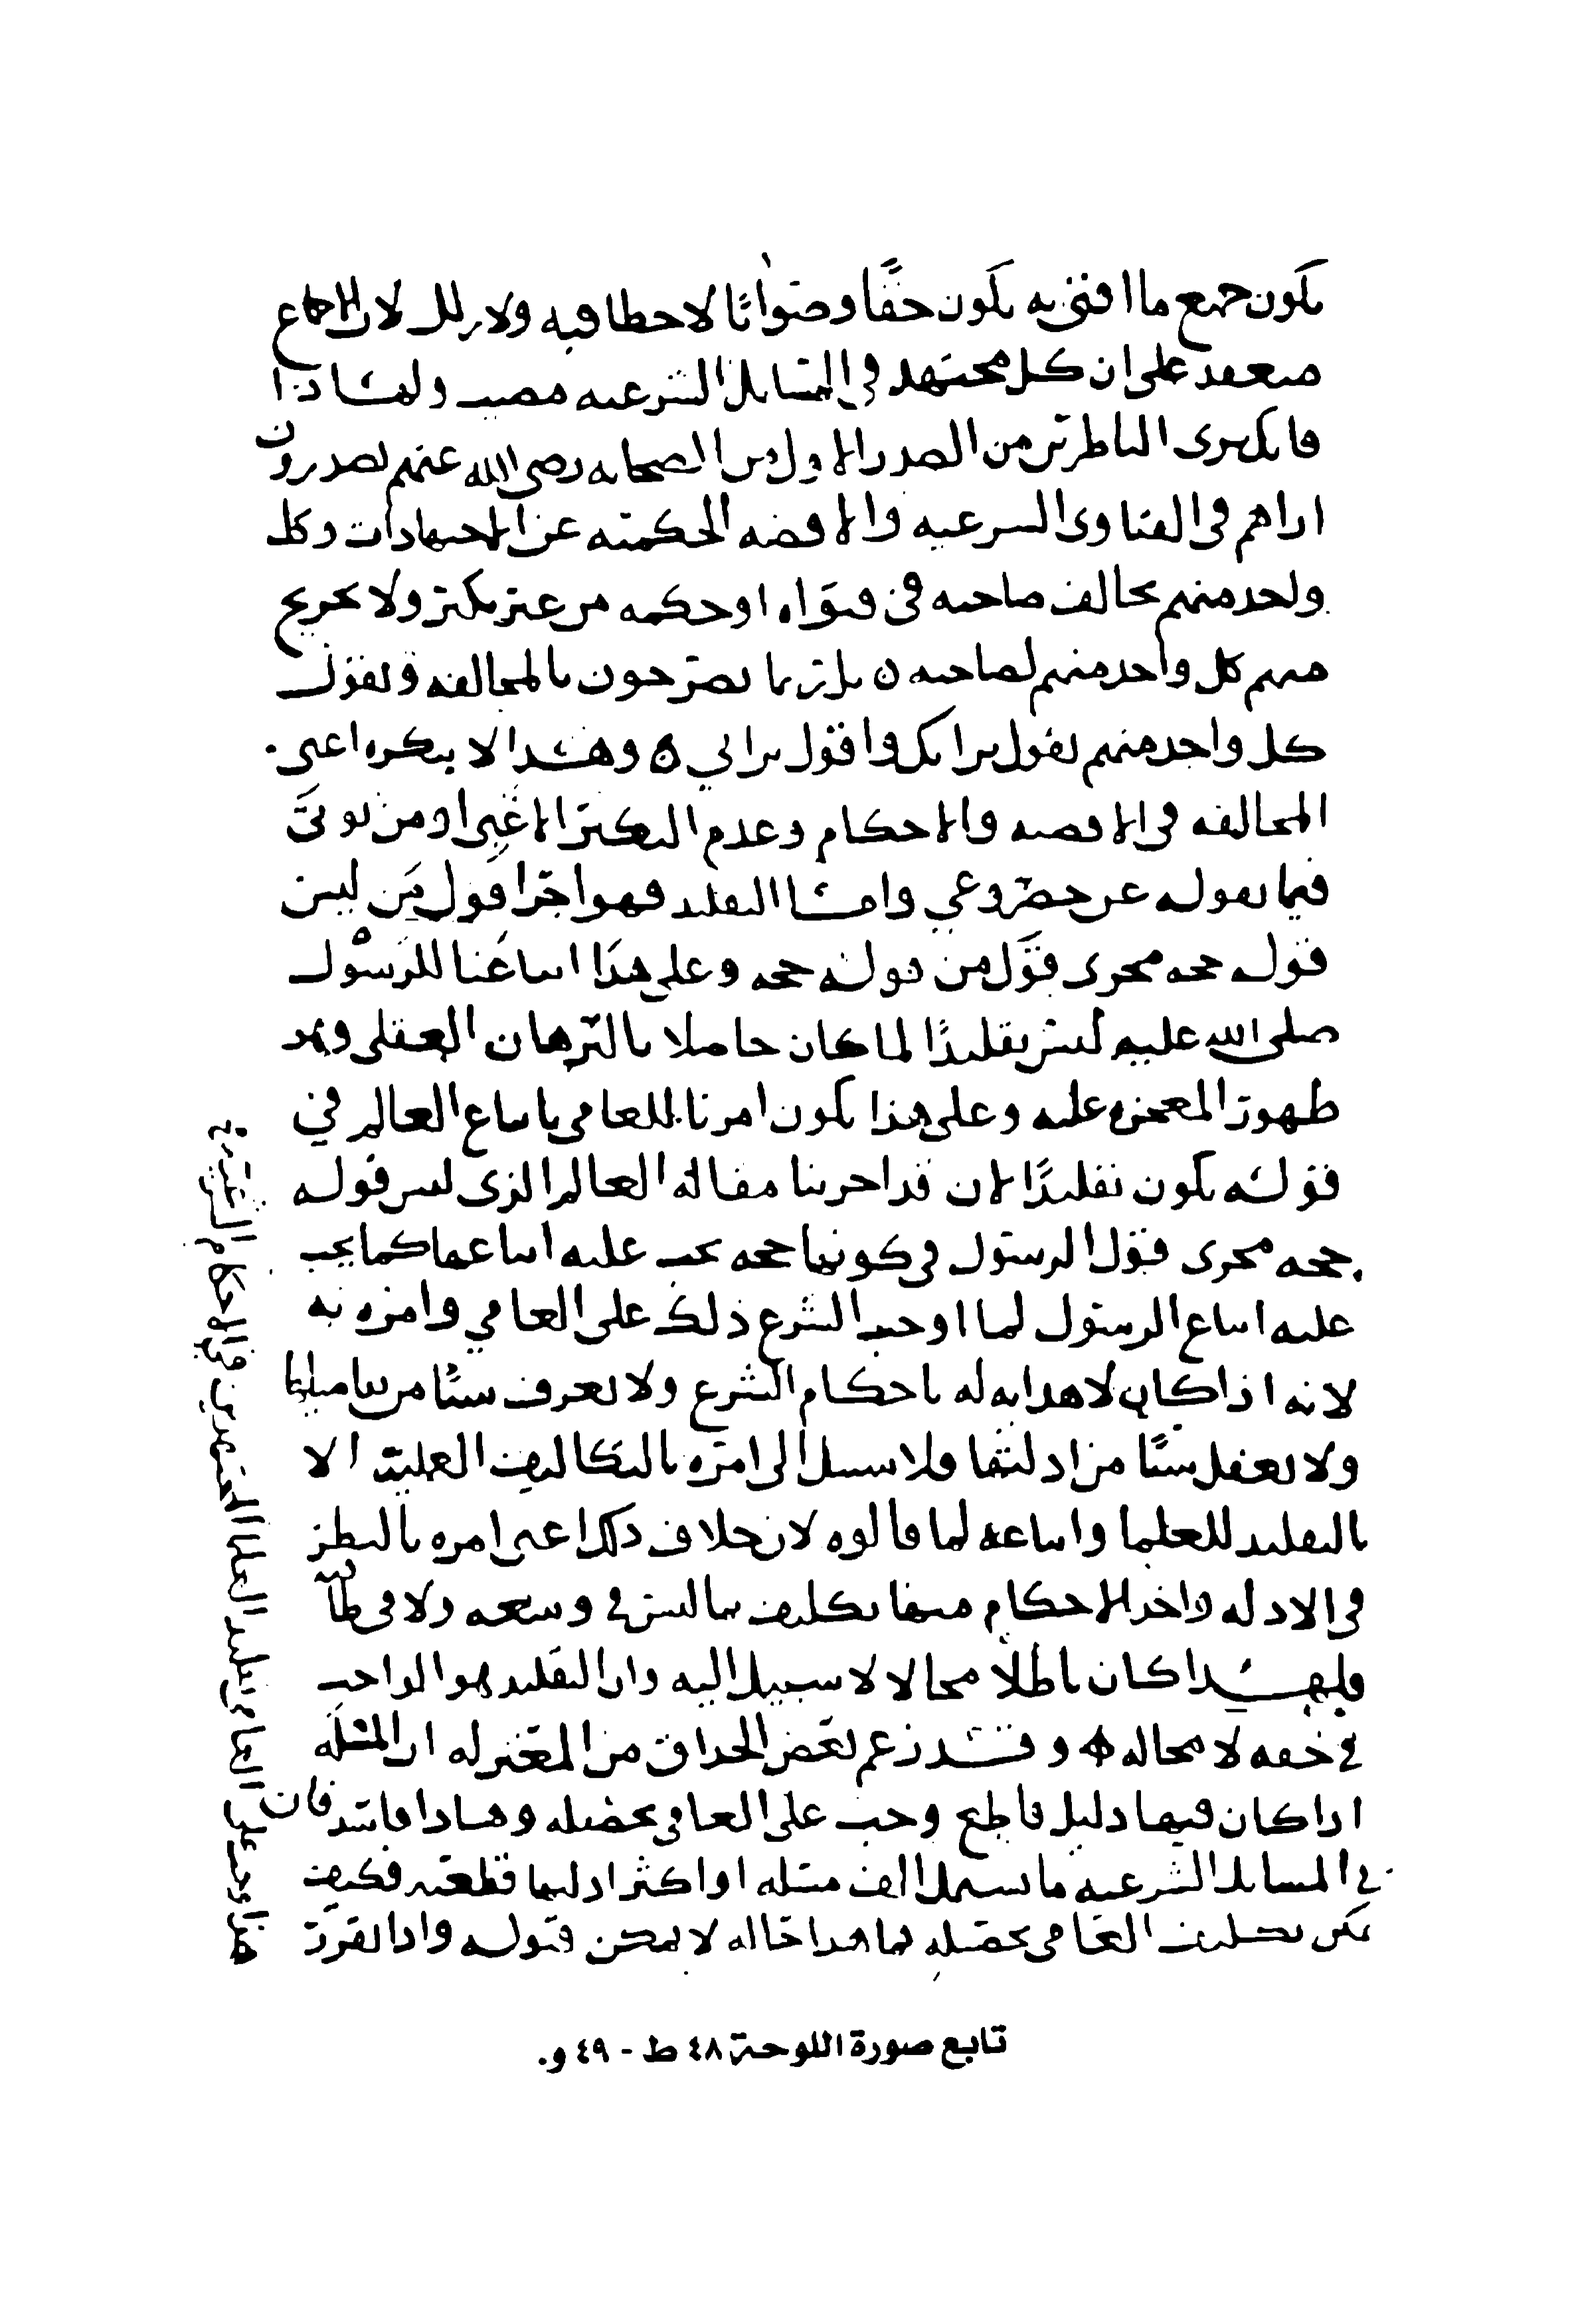 يكون جميع ما افتى به يكون حقًا وصوابًا لا خطا فيه ولا زلل لان الاجماع
منعقد على ان كل مجتهد في المسايل الشرعيه مصيب ولهذا
فانك ترى الناظرين من الصدر الاول من الصحابه رضي الله عنهم يصدرون
اراهم في الفتاوى الشرعيه والاقضيه الحكميه عن الاجتهادات وكل
واحد منهم يخالف صاحبه في فتواه او حكمه من غير نكير ولا تحريج
منهم كل واحد منهم لصاحبه بل ربما يصرحون بالمخالفه ويقول
كل واحد منهم تقول برايك واقول برايي وهذا لا ينكره اعني
المخالفه في الاقضيه والاحكام وعدم النكير الا غبي او من لا
فيما يقوله عن وعي واما التقليد فهو اجرا قول من ليس
قوله حجه مجرى قول من قوله حجه وعلى هذا اتباعنا للرسول
صلى الله عليه ليس تقليدًا لما كان حاصلا بالبرهان العقلي وهو
ظهور المعجزه عليه وعلى هذا يكون امرنا للعامي باتباع العالم في
قوله يكون تقليدًا لان قد اجرينا مقاله العالم الذي ليس قوله
حجه مجرى قول الرسول في كونها حجه يجب عليه اتباعها كما يجب
عليه اتباع الرسول لما اوجب الشرع ذلك على العامي وامره به
لانه اذا كان لا هدايه له باحكام الشرع ولا يعرف شيئا من
ولا يعقل شيئًا من ادلتها فلا سبيل الى امره بالتكاليف العمليه الا
بالتقليد للعلما واتباعه لما قالوه لان خلاف ذلك اعني امره بالنظر
في الادله واخذ الاحكام منها تكليف بما ليس في وسعه ولا في
فلهذا كان باطلا محالا لا سبيل اليه وان التقليد هو الواجب
في حقه لا محاله وقد زعم بعض الحذاق من المعتزله ان المسله
اذا كان فيها دليل قاطع وجب على العامي تحصيله وهذا فاسد فان
في المسايل الشرعيه ما يشمل الف مسله او اكثر ادلتها قطعيه فكيف
يمكن تكليف العامي تحصيله فما هذا حاله لا يمكن قبوله واذا تقرر
هذا وجب على العامي تقليد العلما المجتهدين في الاحكام الشرعيه
تابع صورة اللوحة ٤٨ ط - ٤٩ و.